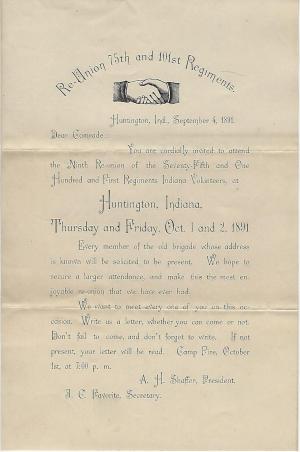 Re-Union 75th and 101st Regiments.
Huntington, Ind., September 4, 1891.
Dear Comrade:
You are cordially invited to attend
the Ninth Re-union of the Seventy-Fifth and One
Hundred and First Regiments Indiana Volunteers, at
Huntington, Indiana,
Thursday and Friday, Oct. 1 and 2, 1891.
Every member of the old brigade whose address
is known will be solicited to be present. We hope to
secure a larger attendance, and make this the most en-
joyable re-union that we have ever had.
We want to meet every one of you on this oc-
casion. Write us a letter, whether you can come or not.
Don't fail to come, and don't forget to write. If not
present, your letter will be read. Camp Fire, October
1st, at 7:00 p. m.
A. H. Shaffer, President.
J. C. Favorite, Secretary.